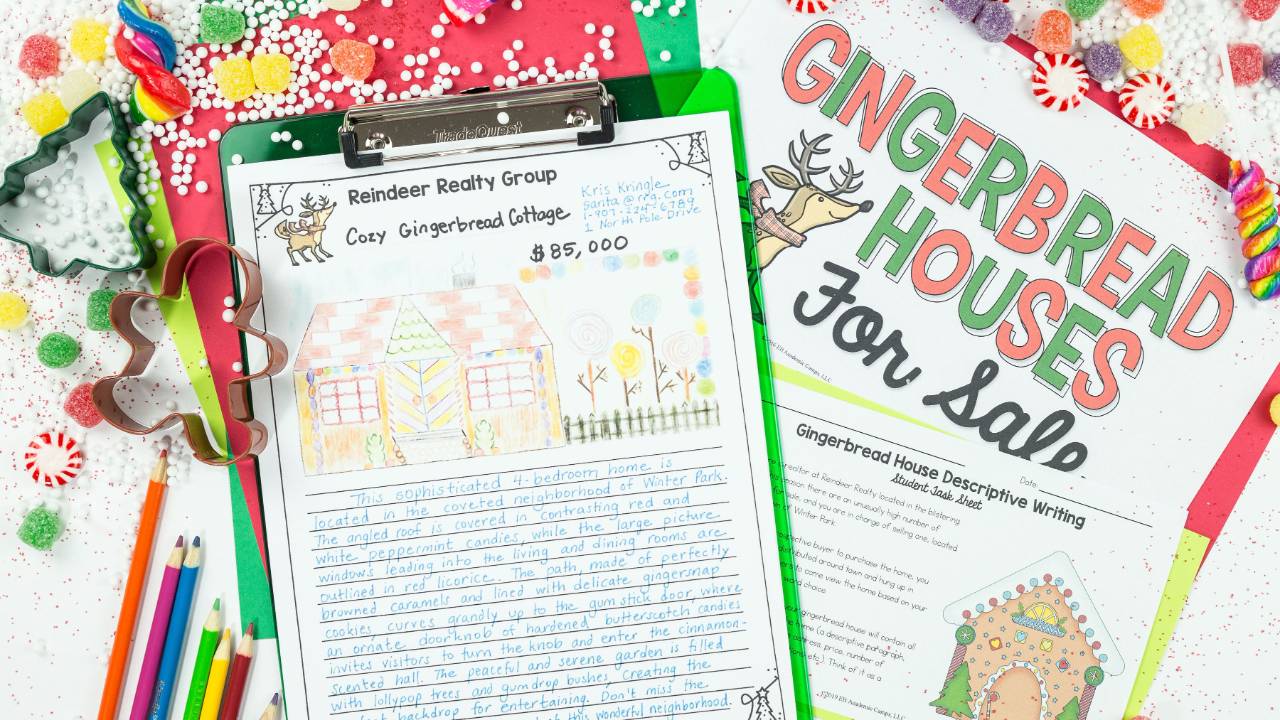 TradeQuest
Reindeer Realty Group
Cozy Gingerbread Cottage
$85,000
Kris Kringle
santa@rrg.com
1-907-224-6789
1 North Pole Drive
This sophisticated 4-bedroom home is
located in the coveted neighborhood of Winter Park.
The angled roof is covered in contrasting red and
white peppermint candies, while the large picture
windows leading into the living and dining rooms are
outlined in red licorice. The path, made of perfectly
browned caramels and lined with delicate gingersnap
cookies, curves grandly up to the gum stick door, where
an ornate doorknob of hardened butterscotch candies
invites visitors to turn the knob and enter the cinnamon-
scented hall. The peaceful and serene garden is filled
with lollypop trees and gumdrop bushes, creating the
backdrop for entertaining. Don't miss the
this wonderful neighborhood.
GINGERBREAD
HOUSES
For Sale
Date:
Gingerbread House Descriptive Writing
Student Task Sheet
realtor at Reindeer Realty located in the blistering
season there are an unusually high number of
sale, and you are in charge of selling one, located
of Winter Park.
prospective buyer to purchase the home, you
distributed around town and hung up in
to come view the home based on your
word choice.
gingerbread house will contain all
home (a descriptive paragraph,
address, price, number of
Think of it as a